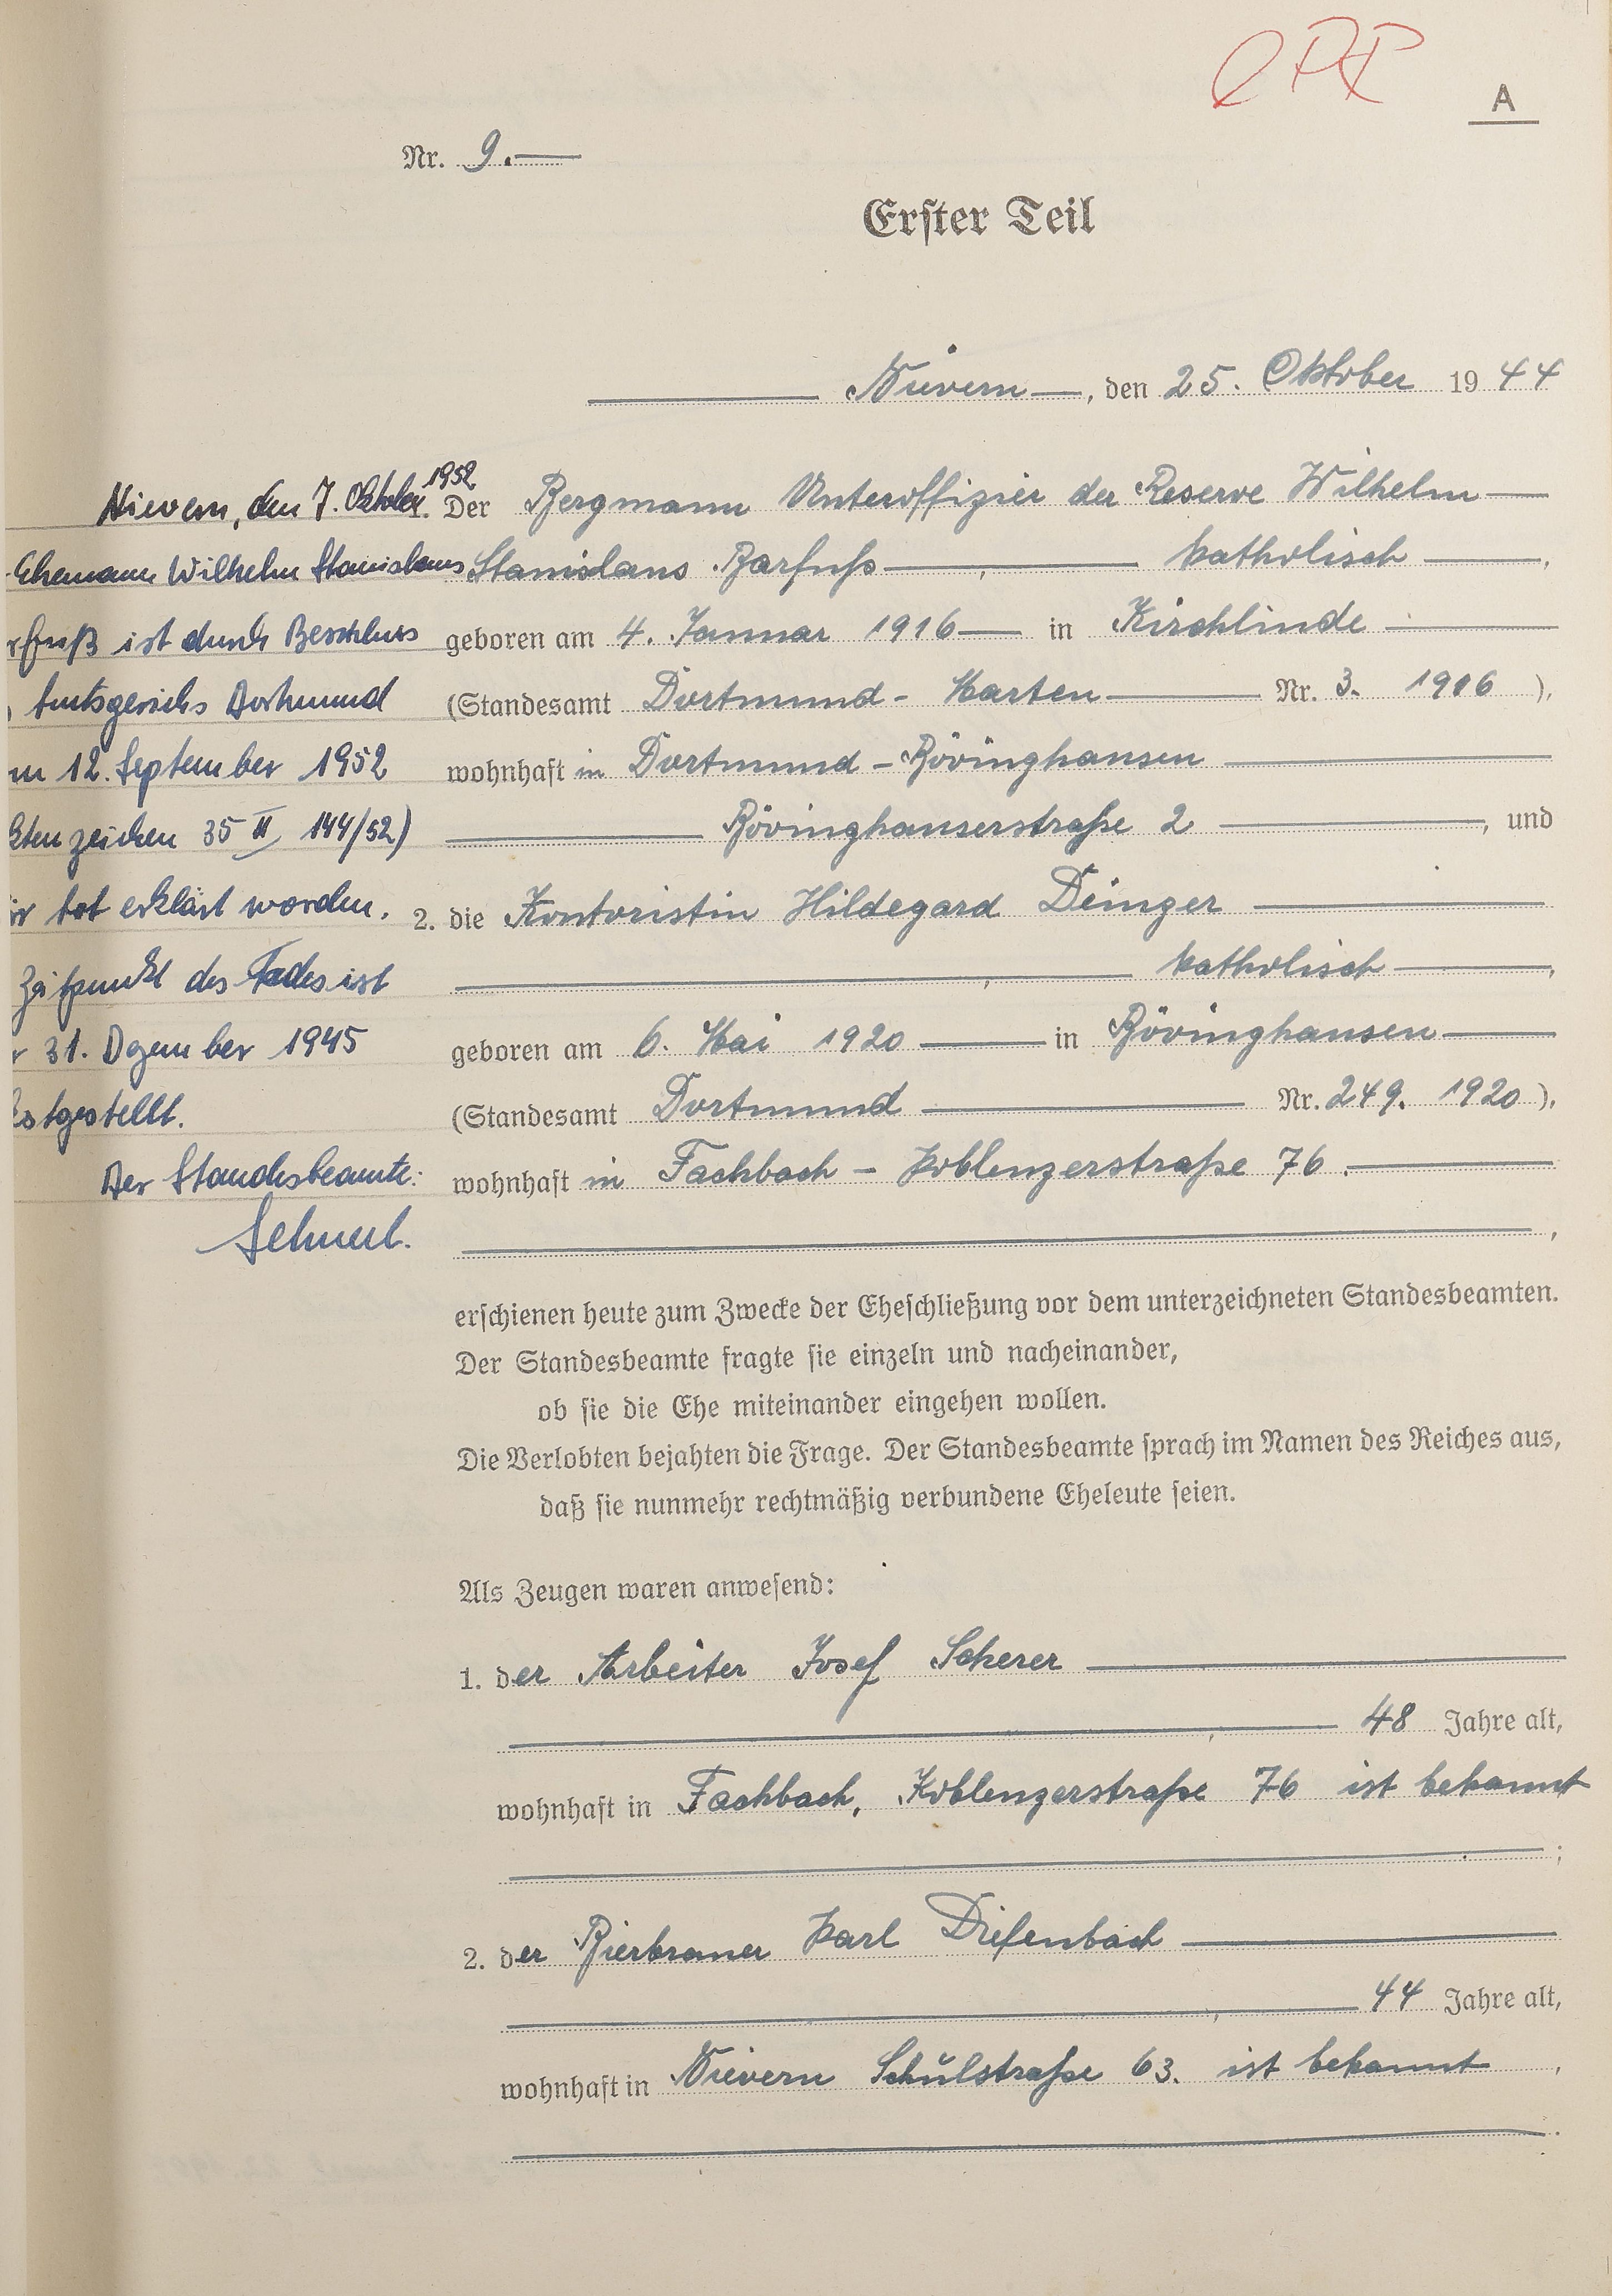 A
Nr. 9.
Erster Teil
Nievern, den 25. Oktober 1944
Nievern, den 7. Oktober 1952
Ehemann Wilhelm Stanislaus
rfuß ist durch Beschluss
Amtsgerichs Dortmund
m 12. September 1952
ktenzeichen 35 II 144/52)
ür tot erklärt worden.
Zeitpunkt des Todes ist
r 31. Dezember 1945
estgestellt.
Der Standesbeamte:
1. Der Bergmann Unteroffizier der Reserve Wilhelm
Stanislaus Barfuß, katholisch,
geboren am 4. Januar 1916 in Kirchlinde
(Standesamt Dortmund-Marten Nr. 3. 1916),
wohnhaft in Dortmund-Bövinghausen
Bövinghauserstraße 2, und
2. die Kontoristin Hildegard Deinger
, katholisch,
geboren am 6. Mai 1920 in Bövinghausen
(Standesamt Dortmund Nr. 249. 1920),
wohnhaft in Fachbach - Koblenzerstraße 76.
,
erschienen heute zum Zwecke der Eheschließung vor dem unterzeichneten Standesbeamten.
Der Standesbeamte fragte sie einzeln und nacheinander,
ob sie die Ehe miteinander eingehen wollen.
Die Verlobten bejahten die Frage. Der Standesbeamte sprach im Namen des Reiches aus,
daß sie nunmehr rechtmäßig verbundene Eheleute seien.
Als Zeugen waren anwesend:
1. der Arbeiter Josef Scherer
, 48 Jahre alt,
wohnhaft in Fachbach, Koblenzerstraße 76 ist bekannt
;
2. der Bierbrauer Karl Diefenbach
, 44 Jahre alt,
wohnhaft in Nievern Schulstraße 63. ist bekannt,
.